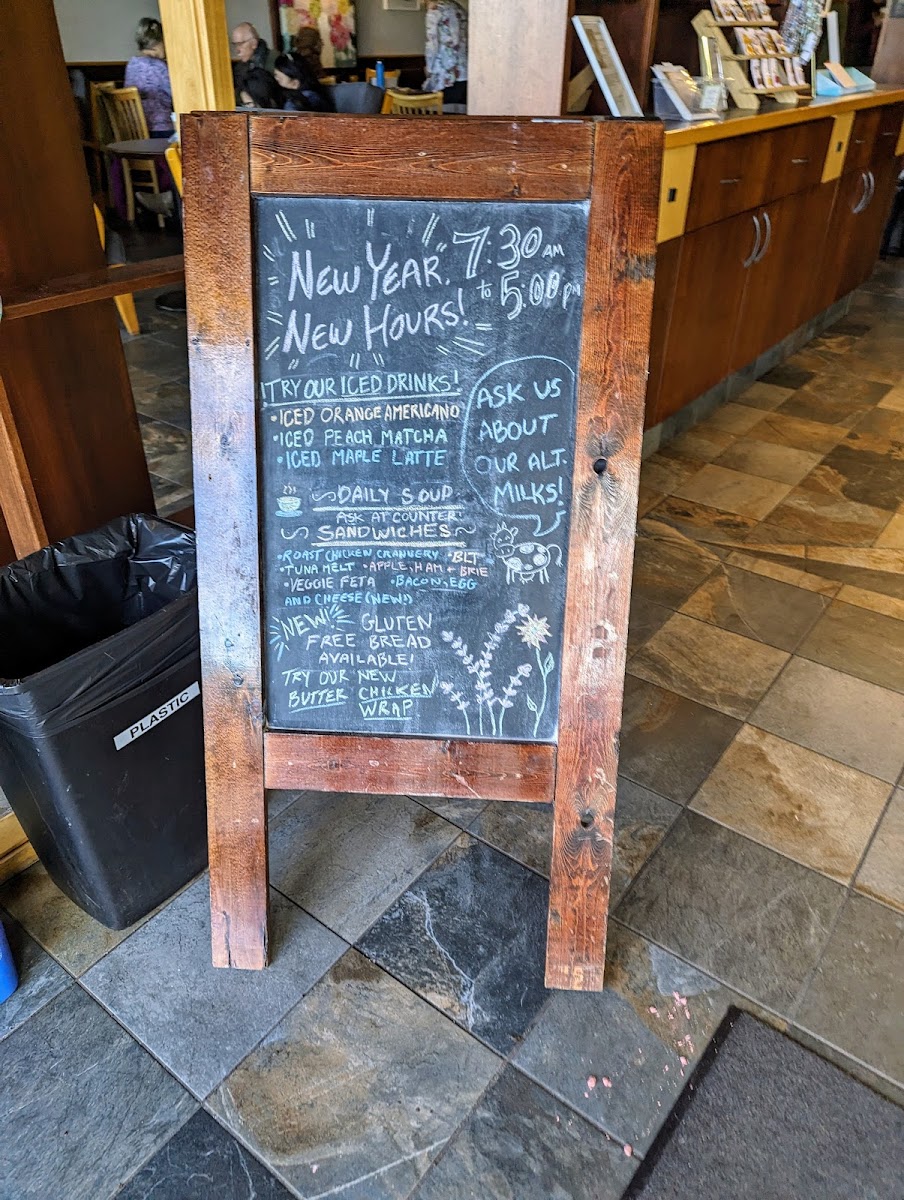 NEW YEAR,
NEW HOURS!
7:30 AM
to 5:00 PM
!TRY OUR ICED DRINKS!
•ICED ORANGE AMERICANO
•ICED PEACH MATCHA
•ICED MAPLE LATTE
ASK US
ABOUT
OUR ALT.
MILKS!
DAILY SOUP
ASK AT COUNTER
SANDWICHES
•ROAST CHICKEN CRANNERY •BLT
•TUNA MELT •APPLE, HAM + BRIE
•VEGGIE FETA •BACON, EGG
AND CHEESE (NEW!)
NEW! GLUTEN
FREE BREAD
AVAILABLE!
TRY OUR NEW
BUTTER CHICKEN
WRAP
PLASTIC